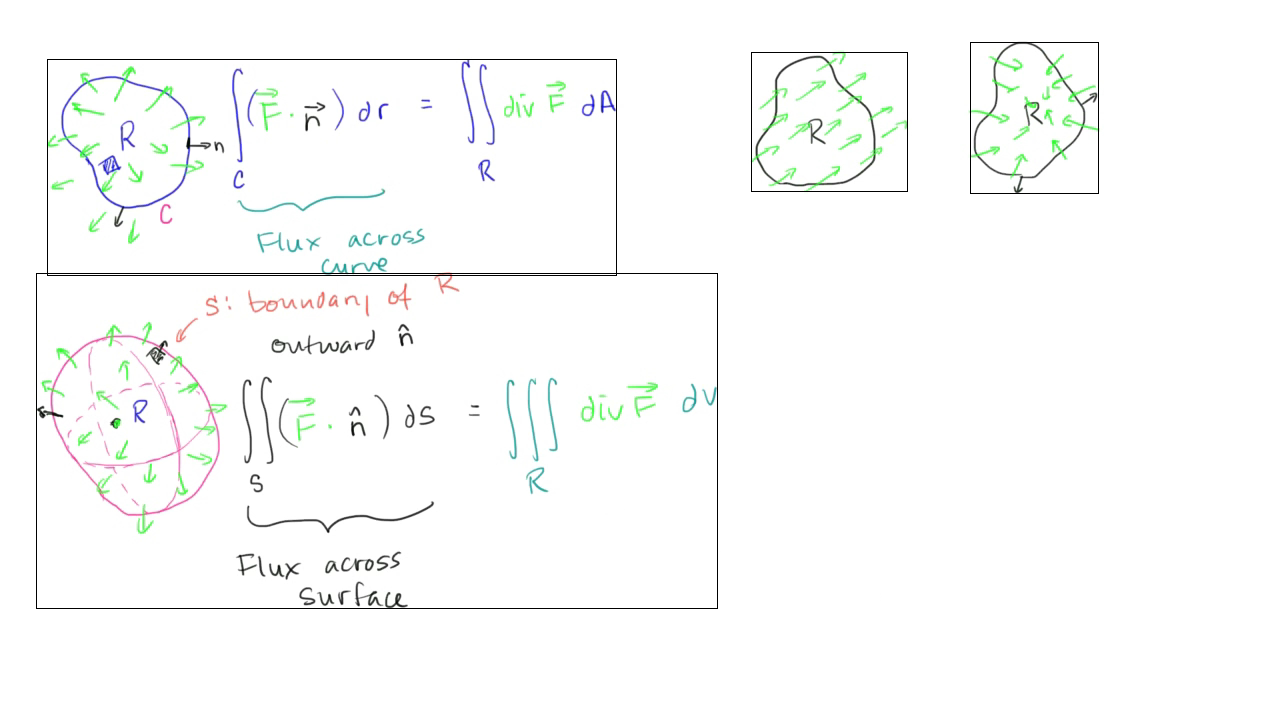 R
n
C
∫ (F⃗ · n⃗) dr = ∬ div F⃗ dA
C
R
Flux across
curve
S: boundary of R
outward n̂
R
∬ (F⃗ · n̂) ds = ∭ div F⃗ dv
S
R
Flux across
surface
R
R